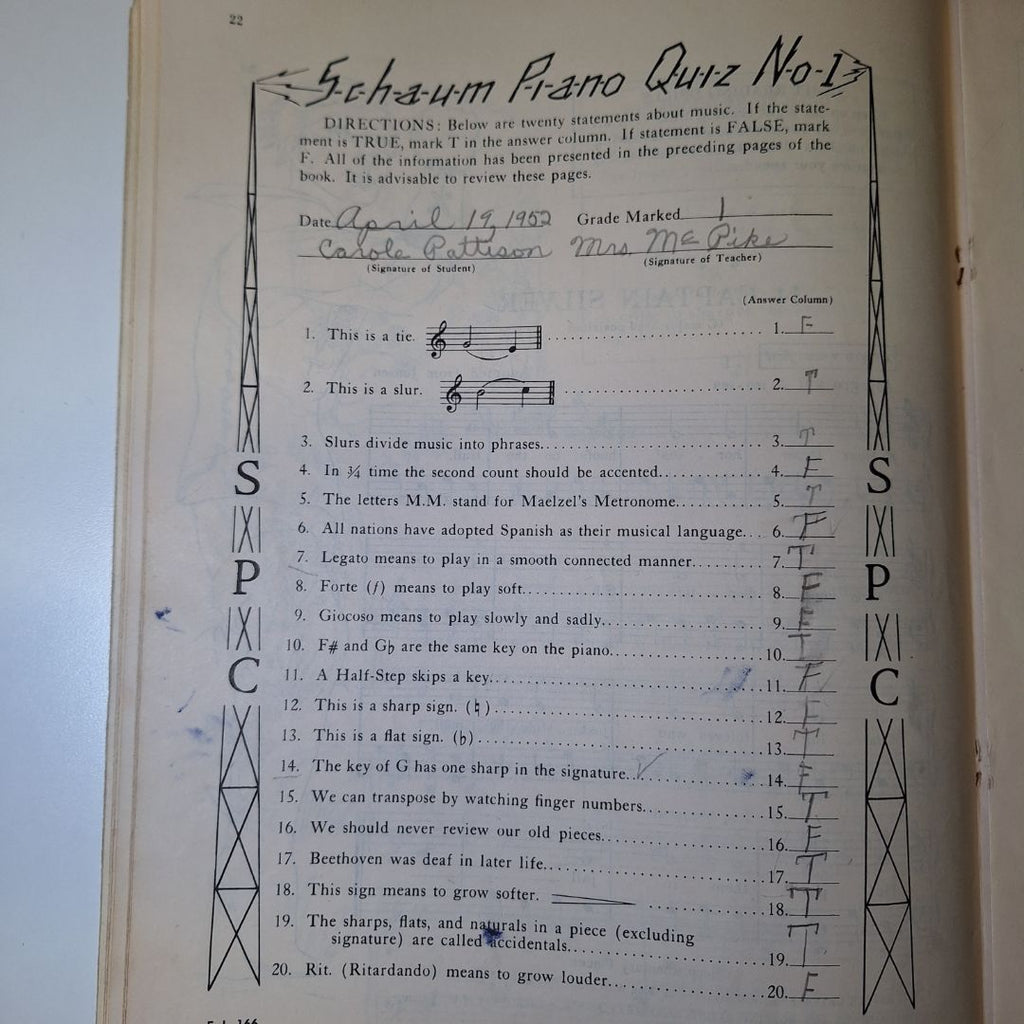 22
Schaum Piano Quiz No. 1
DIRECTIONS: Below are twenty statements about music. If the state-
ment is TRUE, mark T in the answer column. If statement is FALSE, mark
F. All of the information has been presented in the preceding pages of the
book. It is advisable to review these pages.
Date April 19, 1952 Grade Marked 1
Carole Pattison Mrs Mc Pike
(Signature of Student) (Signature of Teacher)
(Answer Column)
1. This is a tie. 1. F
2. This is a slur. 2. T
3. Slurs divide music into phrases. 3. T
4. In ¾ time the second count should be accented. 4. F
5. The letters M.M. stand for Maelzel's Metronome. 5. T
6. All nations have adopted Spanish as their musical language. 6. F
7. Legato means to play in a smooth connected manner. 7. T
8. Forte (f) means to play soft. 8. F
9. Giocoso means to play slowly and sadly. 9. F
10. F# and G♭ are the same key on the piano. 10. T
11. A Half-Step skips a key. 11. F
12. This is a sharp sign. (♮) 12. F
13. This is a flat sign. (♭) 13. T
14. The key of G has one sharp in the signature. 14. F
15. We can transpose by watching finger numbers. 15. T
16. We should never review our old pieces. 16. F
17. Beethoven was deaf in later life. 17. T
18. This sign means to grow softer. 18. T
19. The sharps, flats, and naturals in a piece (excluding
signature) are called accidentals. 19. T
20. Rit. (Ritardando) means to grow louder. 20. F
S
P
C
S
P
C